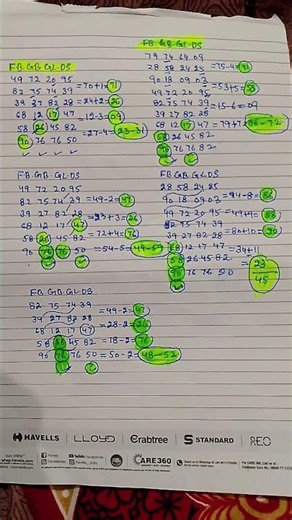 FB. GB GL. DS
49 72 20 95
82 75 74 39 =70+1=71
39 27 82 28 =24+2=26
68 12 17 47 =12-3=09
58 26 45 82 =27-4=23-31
90 76 76 50
FB. GB GL. DS
79 74 64 09
28 58 24 25 =75-4=71
90 18 09 03 =53+5=58
49 72 20 95
82 75 74 39 =15-6=09
39 27 82 28
68 12 17 47 =79+7=86-72
58 26 45 82
90 76 76 82
FB. GB GL. DS
49 72 20 95
82 75 74 39 =49-2=47
39 27 82 28
68 12 17 47
58 26 45 82 =72+4=76
90 76 76 50 =54-5=49-59
FB. GB. GL. DS
28 58 24 25
90 18 09 03 =94-8=86
49 72 20 95 =49+9=58
82 75 74 39
39 27 82 28 =80+10=90
68 12 17 47 =34+11
58 26 45 82
90 76 76 50
45
82 75 74 39 =49-2=47
39 27 82 28 =28-2=26
68 12 17 47
58 26 45 82 =78-2=76
90 76 76 50 =50-2=48-52
HAVELLS LLOYD Crabtree STANDARD REO
CARE360